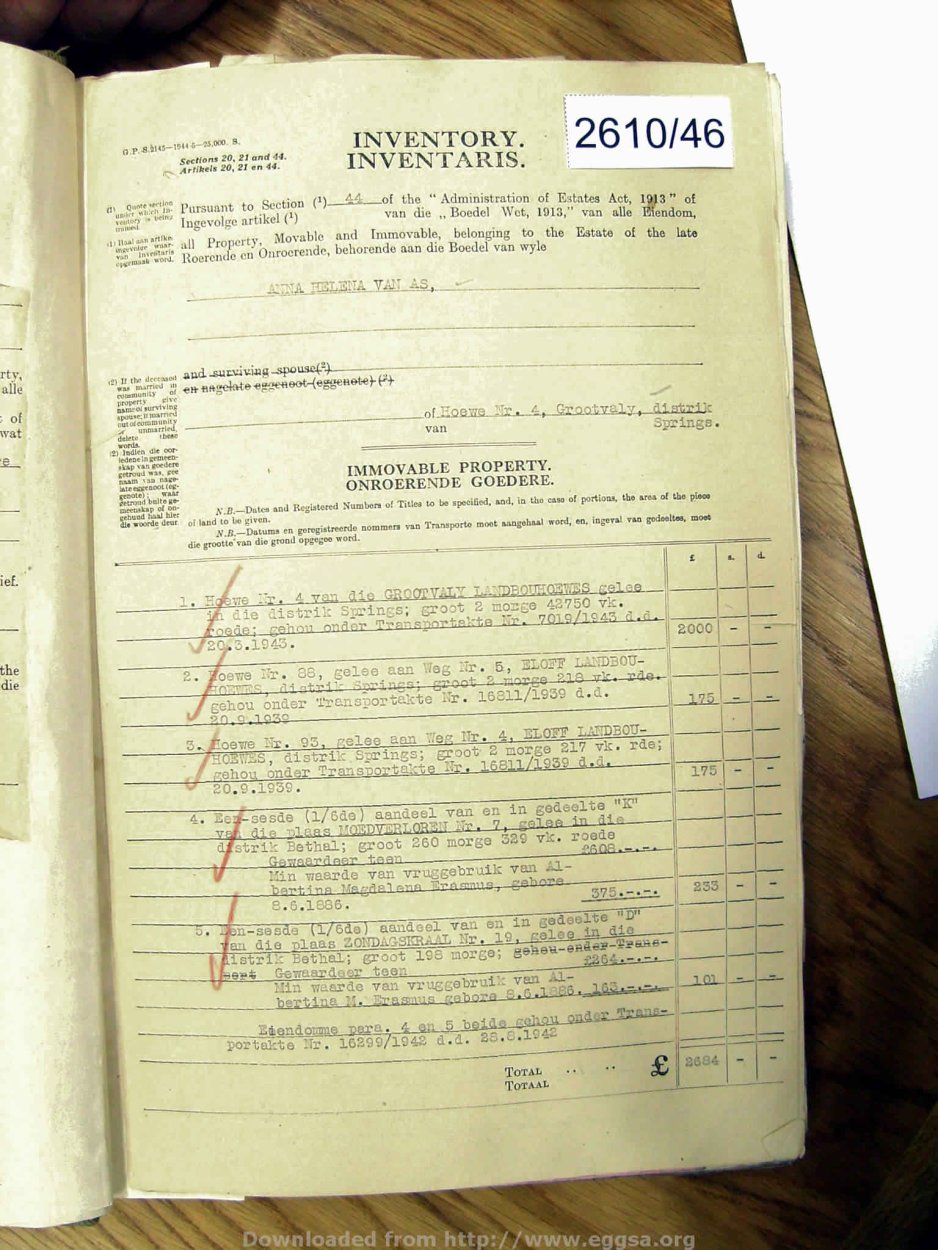 2610/46
G.P.-S.2145—1944-5—25,000. S.
Sections 20, 21 and 44.
Artikels 20, 21 en 44.
INVENTORY.
INVENTARIS.
(1) Quote section
under which In-
ventory is being
framed.
Pursuant to Section (1) 44 of the "Administration of Estates Act, 1913" of
Ingevolge artikel (1) van die „Boedel Wet, 1913," van alle Eiendom,
(1) Haal aan artikel
ingevolge waar-
van Inventaris
opgemaak word.
all Property, Movable and Immovable, belonging to the Estate of the late
Roerende en Onroerende, behorende aan die Boedel van wyle
ANNA HELENA VAN AS,
and surviving spouse(2)
en nagelate eggenoot (eggenote) (2)
(2) If the deceased
was married in
community of
property give
name of surviving
spouse; if married
out of community
or unmarried,
delete these
words.
(2) Indien die oor-
ledene in gemeen-
skap van goedere
getroud was, gee
naam van nage-
late eggenoot (eg-
genote); waar
getroud buite ge-
meenskap of on-
gehuud haal hier
die woorde deur.
of Hoewe Nr. 4, Grootvaly, distrik
van Springs.
IMMOVABLE PROPERTY.
ONROERENDE GOEDERE.
N.B.—Dates and Registered Numbers of Titles to be specified, and, in the case of portions, the area of the piece
of land to be given.
N.B.—Datums en geregistreerde nommers van Transporte moet aangehaal word, en, ingeval van gedeeltes, moet
die grootte van die grond opgegee word.
£ s. d.
1. Hoewe Nr. 4 van die GROOTVALY LANDBOUHOEWES gelee
in die distrik Springs; groot 2 morge 42750 vk.
roede; gehou onder Transportakte Nr. 7019/1943 d.d.
20.3.1943. 2000 - -
2. Hoewe Nr. 88, gelee aan Weg Nr. 5, ELOFF LANDBOU-
HOEWES, distrik Springs; groot 2 morge 218 vk. rde.
gehou onder Transportakte Nr. 16811/1939 d.d. 175 - -
20.9.1939
3. Hoewe Nr. 93, gelee aan Weg Nr. 4, ELOFF LANDBOU-
HOEWES, distrik Springs; groot 2 morge 217 vk. rde;
gehou onder Transportakte Nr. 16811/1939 d.d. 175 - -
20.9.1939.
4. Een-sesde (1/6de) aandeel van en in gedeelte "K"
van die plaas MOEDVERLOREN Nr. 7, gelee in die
distrik Bethal; groot 260 morge 329 vk. roede
Gewaardeer teen £608.-.-.
Min waarde van vruggebruik van Al-
bertina Magdalena Erasmus, gebore 375.-.-. 233 - -
8.6.1886.
5. Een-sesde (1/6de) aandeel van en in gedeelte "D"
van die plaas ZONDAGSKRAAL Nr. 19, gelee in die
distrik Bethal; groot 198 morge; gehou onder Trans-
port Gewaardeer teen £264.-.-.
Min waarde van vruggebruik van Al-
bertina M. Erasmus gebore 8.6.1886. 163.-.-. 101 - -
Eiendomme para. 4 en 5 beide gehou onder Trans-
portakte Nr. 16299/1942 d.d. 28.8.1942
TOTAL .. .. £ 2684 - -
TOTAAL
rty,
alle
of
wat
e
ief.
the
die
Downloaded from http://www.eggsa.org